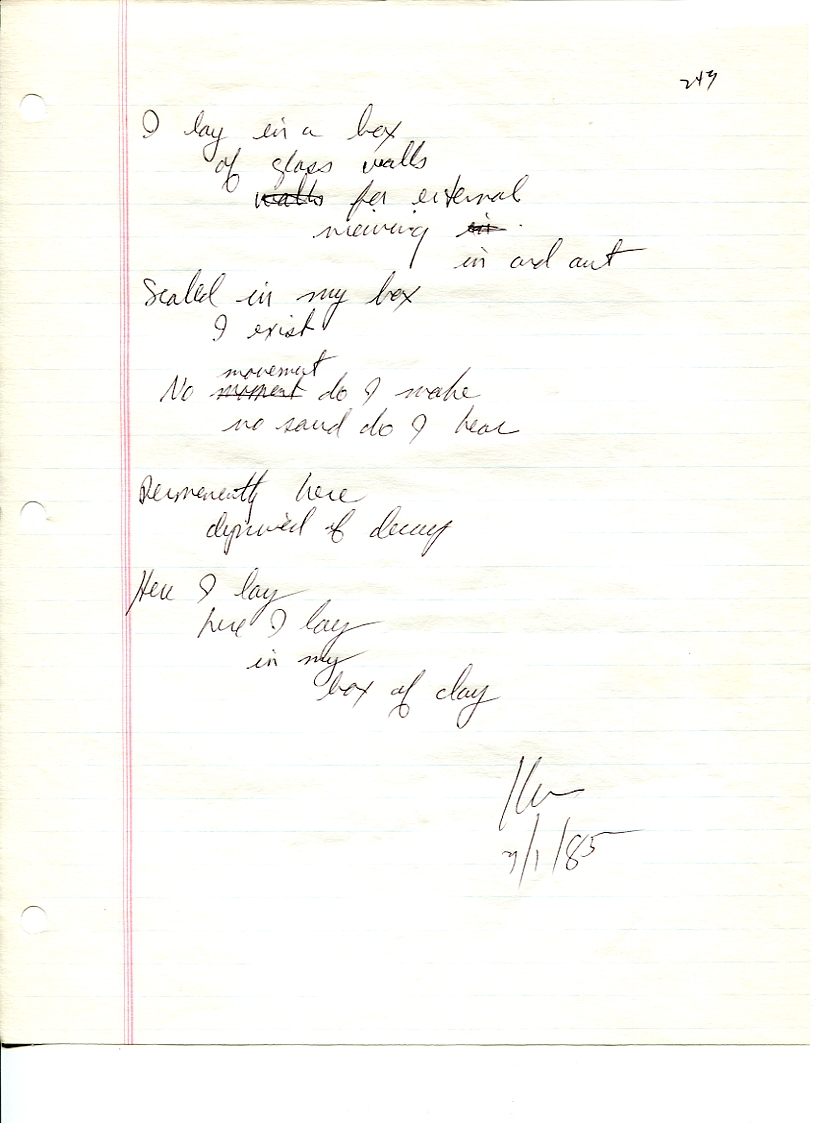 249
I lay in a box
of glass walls
walls for external
viewing in.
in and out
Sealed in my box
I exist
movement
No moment do I make
no sound do I hear
Permanently here
deprived of decay
Here I lay
here I lay
in my
box of clay
7/1/85